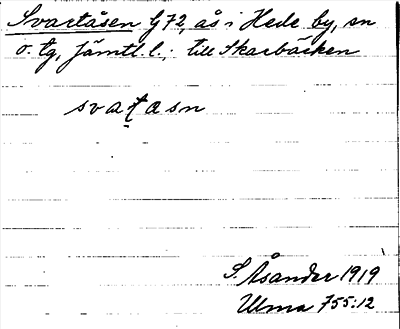 Svartåsen G72, ås i Hede by, sn
o. tg, Jämtl. l.; till Skarbäcken
svat̤asn
S. Åsander 1919
Ulma 755:12